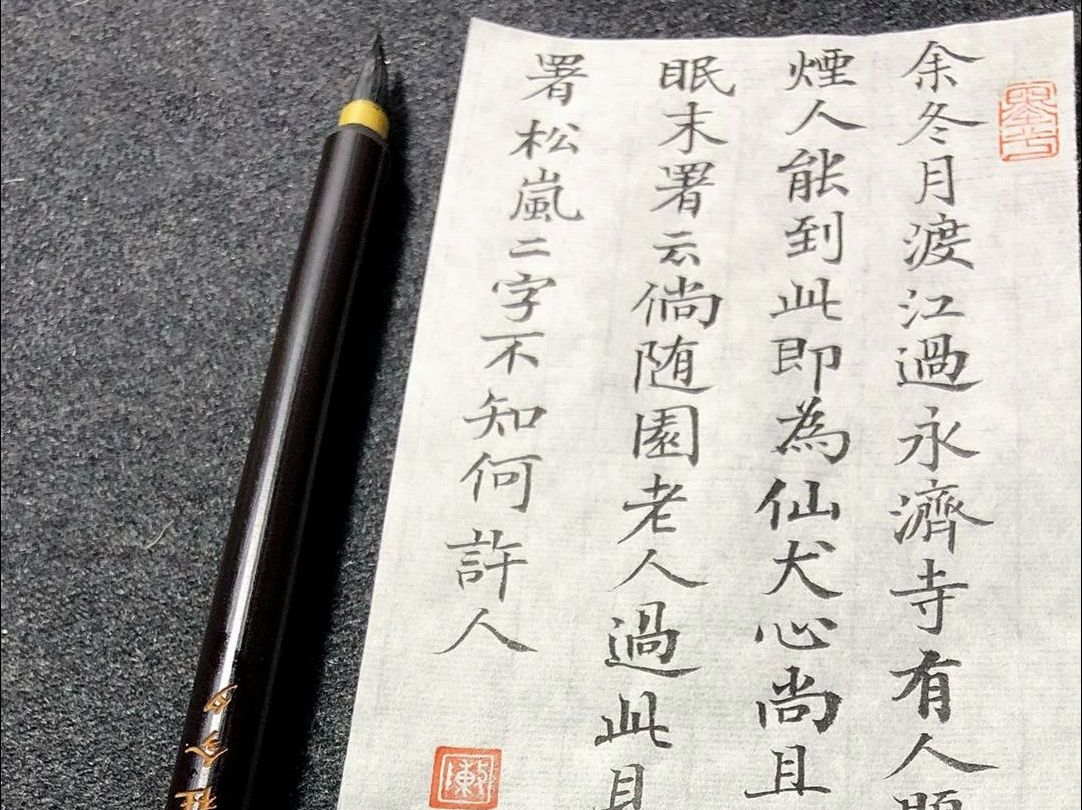 余冬月渡江過永濟寺有人題
煙人能到此即為仙犬心尚且
眠末署云倘随園老人過此
署松嵐二字不知何許人